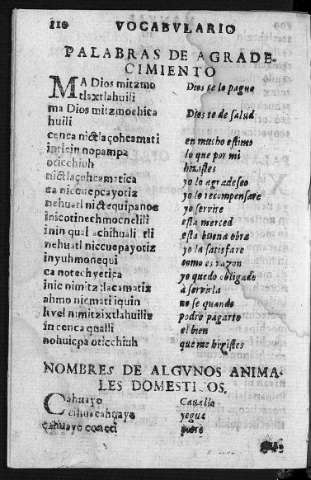 110 VOCABVLARIO
PALABRAS DE AGRADE-
CIMIENTO
MA Dios mitzmo Dios se lo pague
tlaxtlahuili
ma Dios mitzmochica Dios te de salud
huili
cenca nictlaçohcamati en mucho estimo
intlein nopampa lo que por mi
oticchiuh hizistes
nictlaçohcamatica yo lo agradesco
ca nicuepcayotiz yo lo recompensare
nehuatl nictequipanos yo servire
inicotinechmocnelili esta merced
inin qualachihuali tli esta buena obra
nehuatl niccuepcayotiz yo la satisfare
inyuhmonequi como es razon
ca notechyetica yo quedo obligado
inic nimitztlacamatiz à servirla
ahmo nicmati iquin no se quando
huel nimitzixtlahuiliz podre pagarte
in cenca qualli el bien
nohuicpa oticchiuh que me hizistes
NOMBRES DE ALGVNOS ANIMA-
LES DOMESTICOS.
Cahuayo Caballo
cihuacahuayo yegua
cahuayo conetl potro